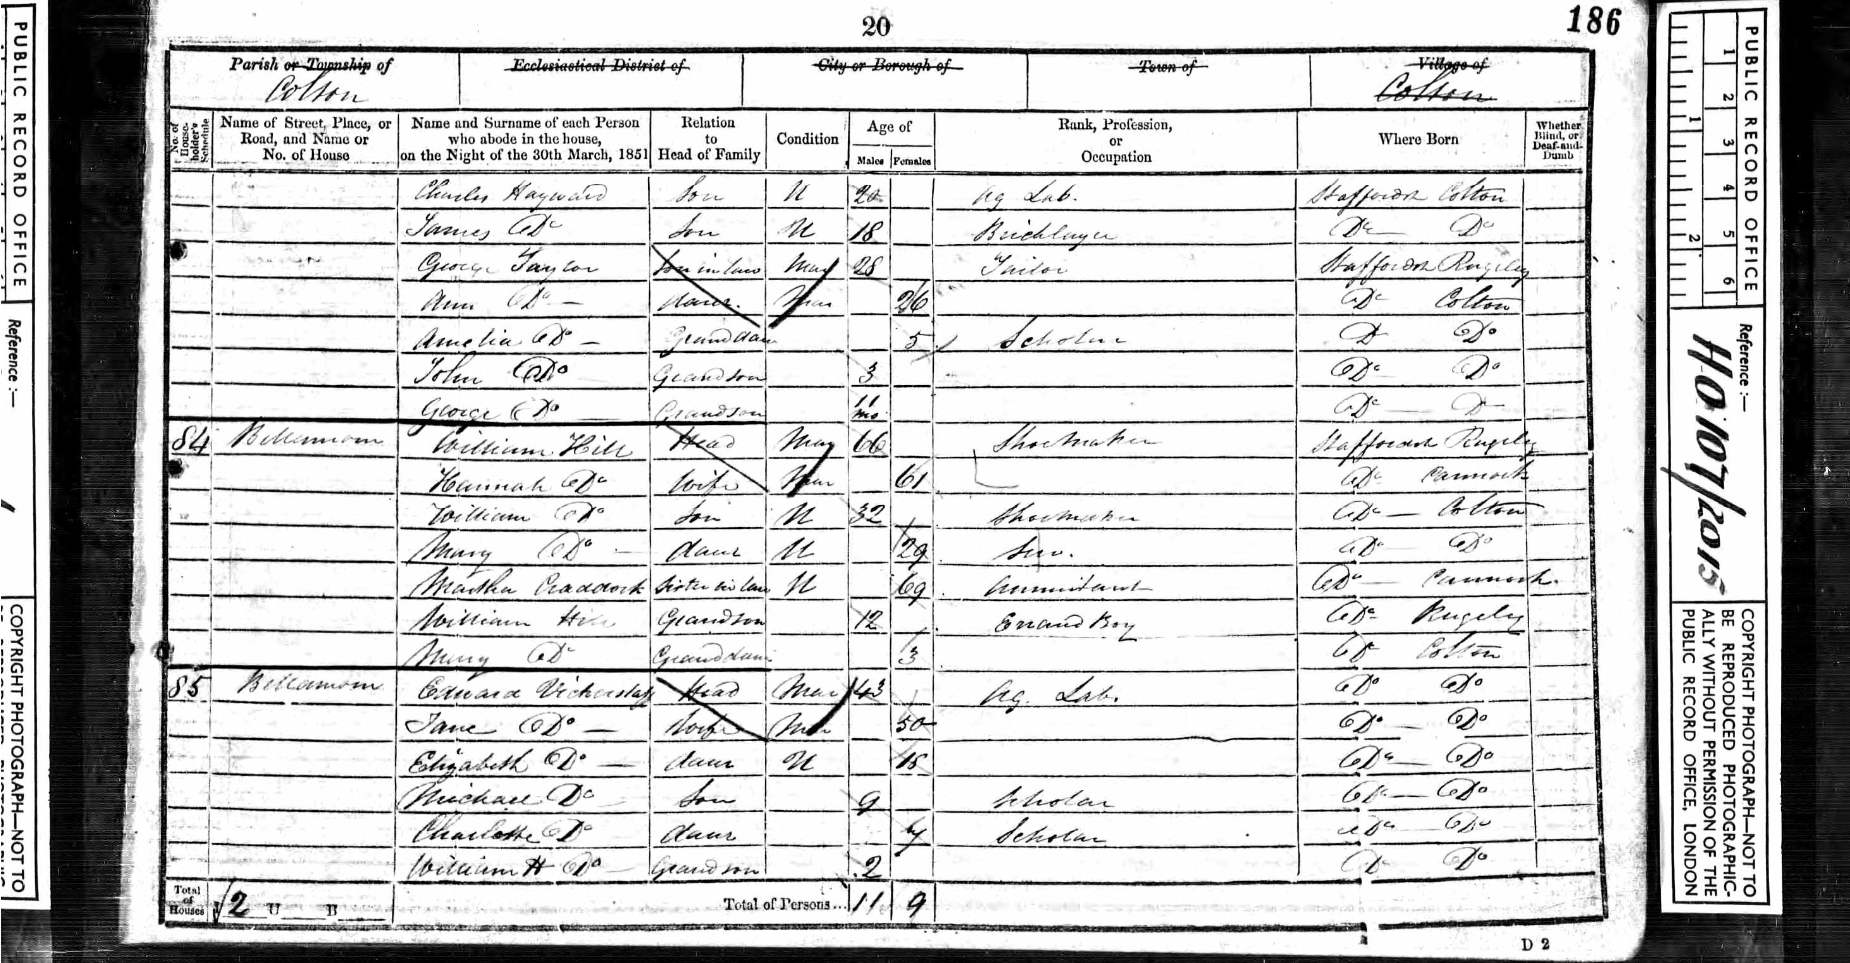 20
186
Parish or Township of
Colton
Ecclesiastical District of
City or Borough of
Town of
Village of
Colton
No. of House-holder's Schedule
Name of Street, Place, or Road, and Name or No. of House
Name and Surname of each Person who abode in the house, on the Night of the 30th March, 1851
Relation to Head of Family
Condition
Age of
Males
Females
Rank, Profession, or Occupation
Where Born
Whether Blind, or Deaf-and-Dumb
Charles Hayward Son U 20 Ag Lab. Staffordsh Colton
James Do Son U 18 Bricklayer Do Do
George Taylor Son in law Mar 28 Tailor Staffordsh Rugeley
Ann Do daur. Mar 26 Do Colton
Amelia Do Granddaur 5 Scholar D Do
John Do Grandson 3 Do Do
George Do Grandson 11 mo Do D
84 Bellamour William Hill Head Mar 66 Shoemaker Staffordsh Rugeley
Hannah Do Wife Mar 61 Do Cannock
William Do Son U 32 Shoemaker Do Colton
Mary Do daur U 29 Do Do
Martha Craddock Sister in law U 69 Annuitant Do Cannock.
William Hill Grandson 12 Errand Boy Do Rugeley
Mary Do Granddaur 3 Do Colton
85 Bellamour Edward Vickerstaff Head Mar 43 Ag. Lab. Do Do
Jane Do Wife Mar 50 Do Do
Elizabeth Do daur U 18 Do Do
Michael Do Son 9 Scholar Do Do
Charlotte Do daur Scholar Do Do
William H Do Grandson 2 Do Do
Total of Houses 2 U B Total of Persons... 11 9
D 2
PUBLIC RECORD OFFICE
Reference :—
COPYRIGHT PHOTOGRAPH—NOT TO
1 2 3 4 5 6
1 2
PUBLIC RECORD OFFICE
Reference :—
HO 107/2015
COPYRIGHT PHOTOGRAPH—NOT TO
BE REPRODUCED PHOTOGRAPHIC-
ALLY WITHOUT PERMISSION OF THE
PUBLIC RECORD OFFICE, LONDON